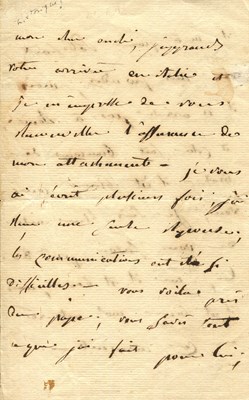 mon cher oncle, j'apprends
votre arrivée en Italie et
je m'empresse de vous
renouveller l'assurance de
mon attachement - je vous
ai écrit plusieurs fois
une seule
les communications ont été si
difficiles - vous voila près
du pape, vous savés tout
ce que j'ai fait pour lui,